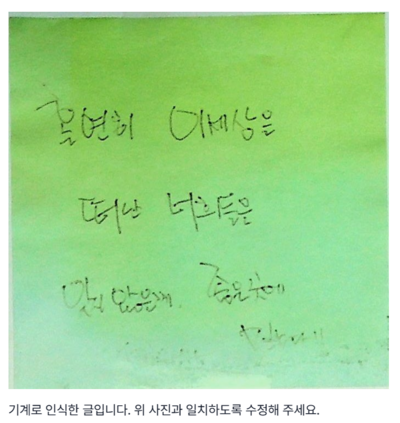 홀연히 이세상을
떠난 너희들을
잊지 않을게. 좋은곳에
기계로 인식한 글입니다. 위 사진과 일치하도록 수정해 주세요.